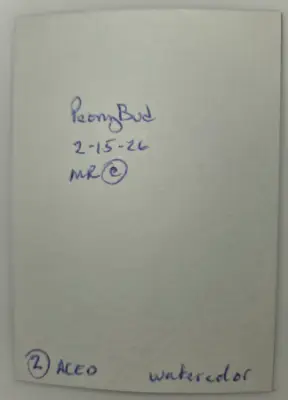 Peony Bud
2-15-26
MR ©
② ACEO watercolor